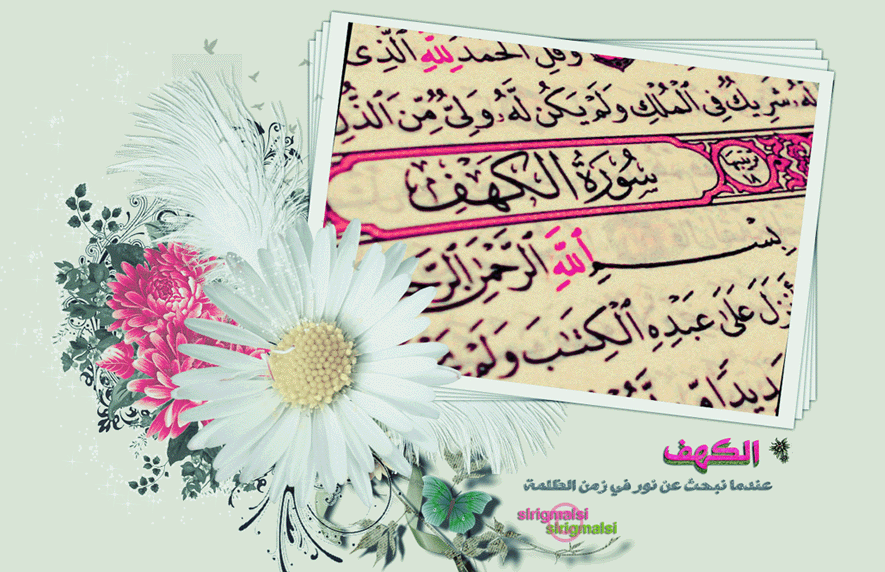 وَقُلِ الْحَمْدُ لِلَّهِ الَّذِى
لَّهُ شَرِيكٌ فِى الْمُلْكِ وَلَمْ يَكُن لَّهُ وَلِىٌّ مِّنَ الذُّلِّ
سُورَةُ الْكَهْفِ
بِسْمِ اللَّهِ الرَّحْمَٰنِ
أَنزَلَ عَلَىٰ عَبْدِهِ الْكِتَٰبَ وَلَمْ
الكهف
عندما نبحث عن نور في زمن الظلمة
sirigmalsi
sirigmalsi